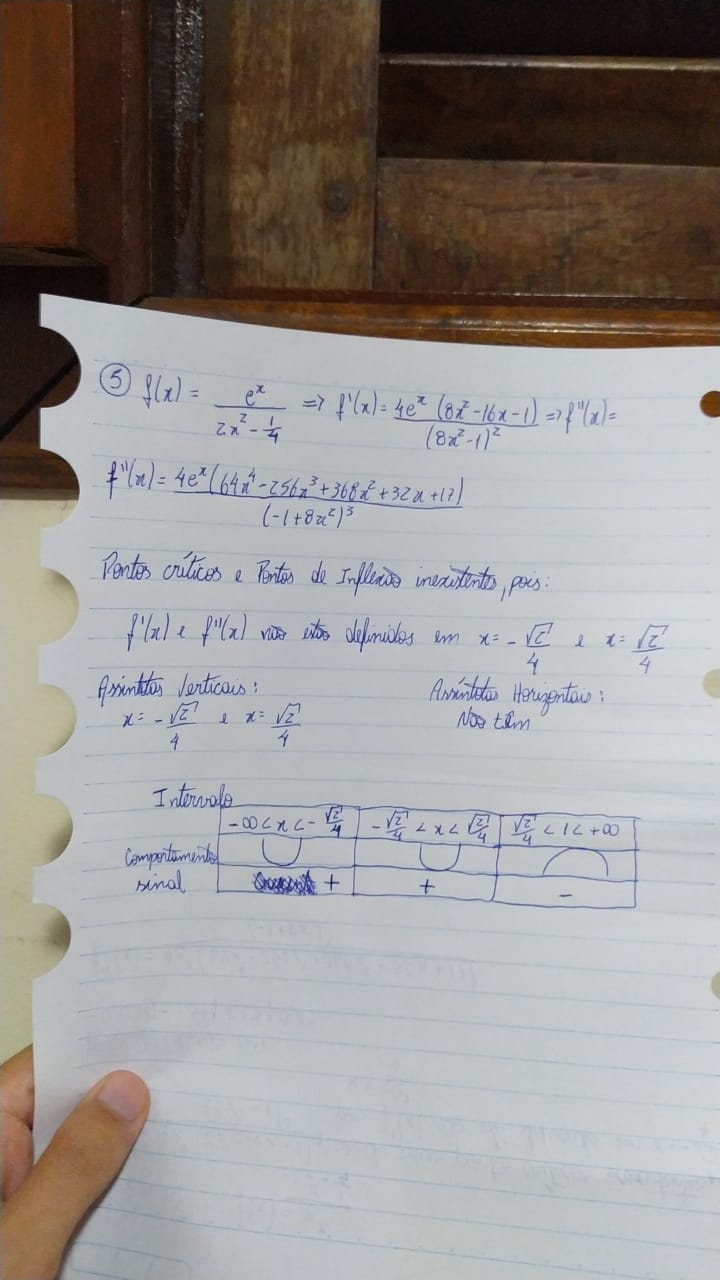 ⑤ f(x) = e^x / (2x² - 1/4) => f'(x) = 4e^x (8x² - 16x - 1) / (8x² - 1)² => f''(x) =
f''(x) = 4e^x (64x⁴ - 256x³ + 368x² + 32x + 17) / (-1 + 8x²)³
Pontos críticos e Pontos de Inflexão inexistentes, pois:
f'(x) e f''(x) não estão definidos em x = -√2/4 e x = √2/4
Assíntotas Verticais: Assíntotas Horizontais:
x = -√2/4 e x = √2/4 Não têm
Intervalo
-∞ < x < -√2/4 -√2/4 < x < √2/4 √2/4 < 1 < +∞
Comportamento
sinal + + -